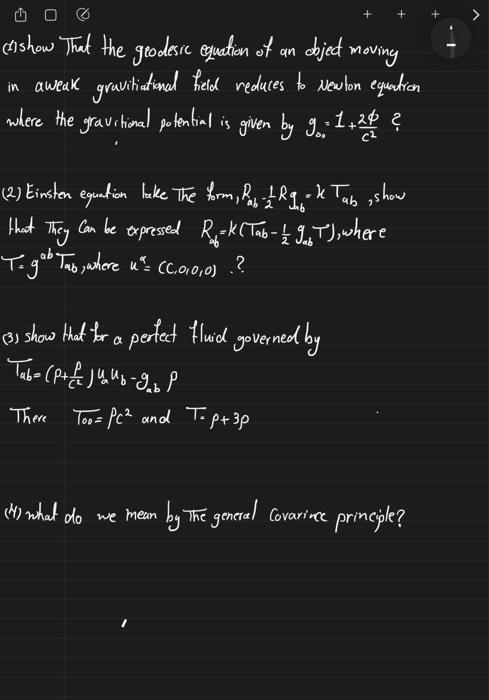 (1) show That the geodesic equation of an object moving
in a weak gravitiational field reduces to Newton equation
where the gravitional potential is given by g₀₀ = 1 + 2Φ/c² ?
(2) Einsten equation take The form, R_ab - 1/2 R g_ab = k T_ab , show
that They Can be expressed R_ab = k (T_ab - 1/2 g_ab T), where
T = g^ab T_ab, where u^a = (C,0,0,0) . ?
(3) show that for a perfect fluid governed by
T_ab = (ρ + p/c²) u_a u_b - g_ab p
There T₀₀ = ρc² and T = ρ + 3p
(4) what do we mean by The general Covarince principle?